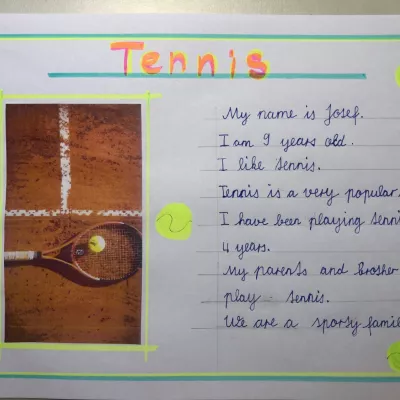 Tennis
My name is Josef.
I am 9 years old.
I like tennis.
Tennis is a very popular.
I have been playing tenni
4 years.
My parents and brother
play tennis.
We are a sporty famil